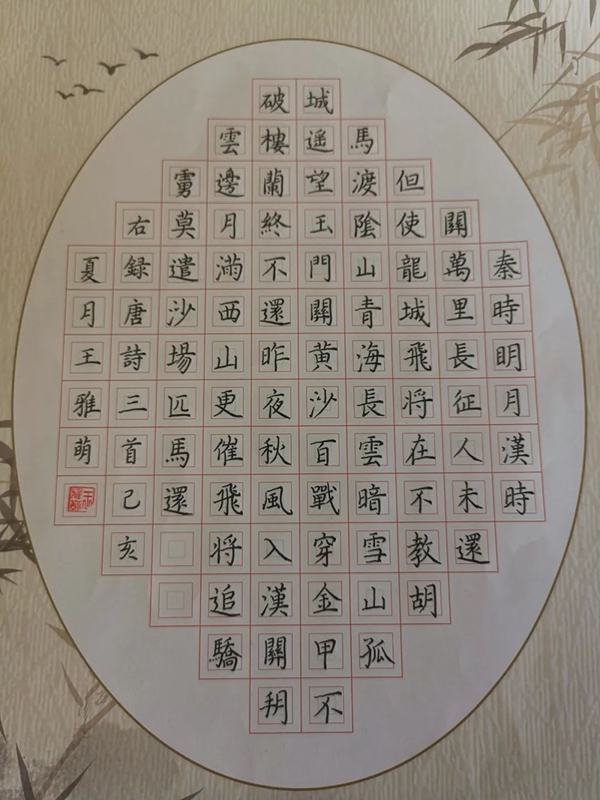 秦時明月漢時
關萬里長征人未還
但使龍城飛将在不教胡
馬渡陰山青海長雲暗雪山孤
城遥望玉門關黄沙百戰穿金甲不
破樓蘭終不還昨夜秋風入漢關朔
雲邊月滿西山更催飛将追驕
虜莫遣沙場匹馬還
右録唐詩三首己亥
夏月王雅萌